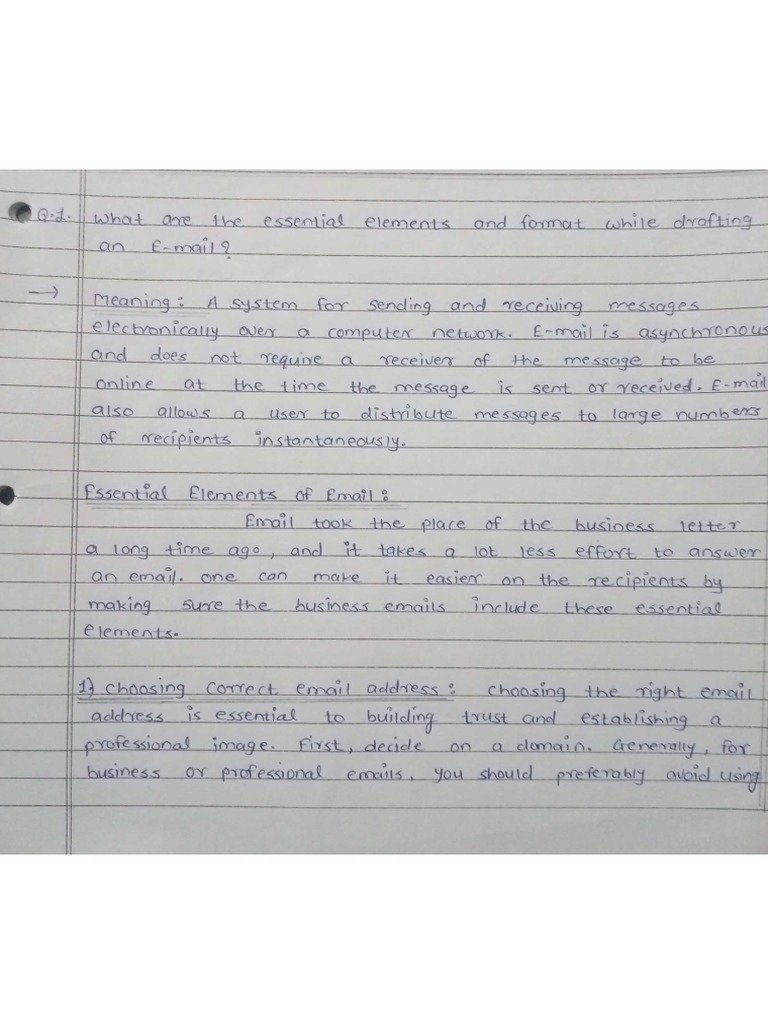 Q.1. What are the essential elements and format while drafting
an E-mail?
→ Meaning: A system for sending and receiving messages
electronically over a computer network. E-mail is asynchronous
and does not require a receiver of the message to be
online at the time the message is sent or received. E-mail
also allows a user to distribute messages to large numbers
of recipients instantaneously.
Essential Elements of Email:
Email took the place of the business letter
a long time ago, and it takes a lot less effort to answer
an email. one can make it easier on the recipients by
making sure the business emails include these essential
elements.
1) Choosing correct email address: choosing the right email
address is essential to building trust and establishing a
professional image. First, decide on a domain. Generally, for
business or professional emails, you should preferably avoid using